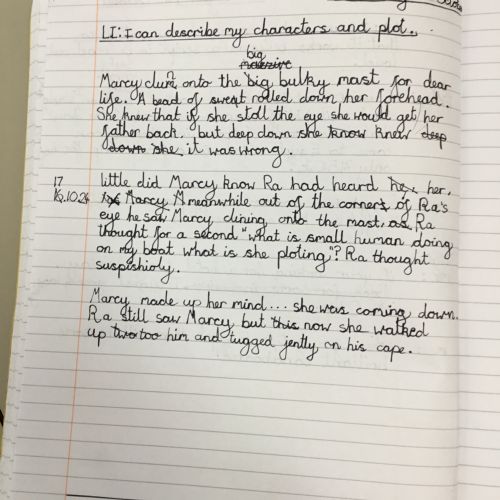 LI: I can describe my characters and plot.
big
massive
Marcy clung onto the big bulky mast for dear
life. A bead of sweat rolled down her forehead.
She knew that if she stoll the eye she would get her
father back. but deep down she know knew deep
down she it was wrong.
17
16.10.24
little did Marcy know Ra had heard her. her.
Marcy Meanwhile out of the corners of Ra's
eye he saw Marcy clining onto the mast. as Ra
thought for a second "what is small human doing
on my boat what is she ploting"? Ra thought
suspishioly.
Marcy made up her mind... she was coming down.
Ra still saw Marcy but this now she walked
up two too him and tugged jently on his cape.